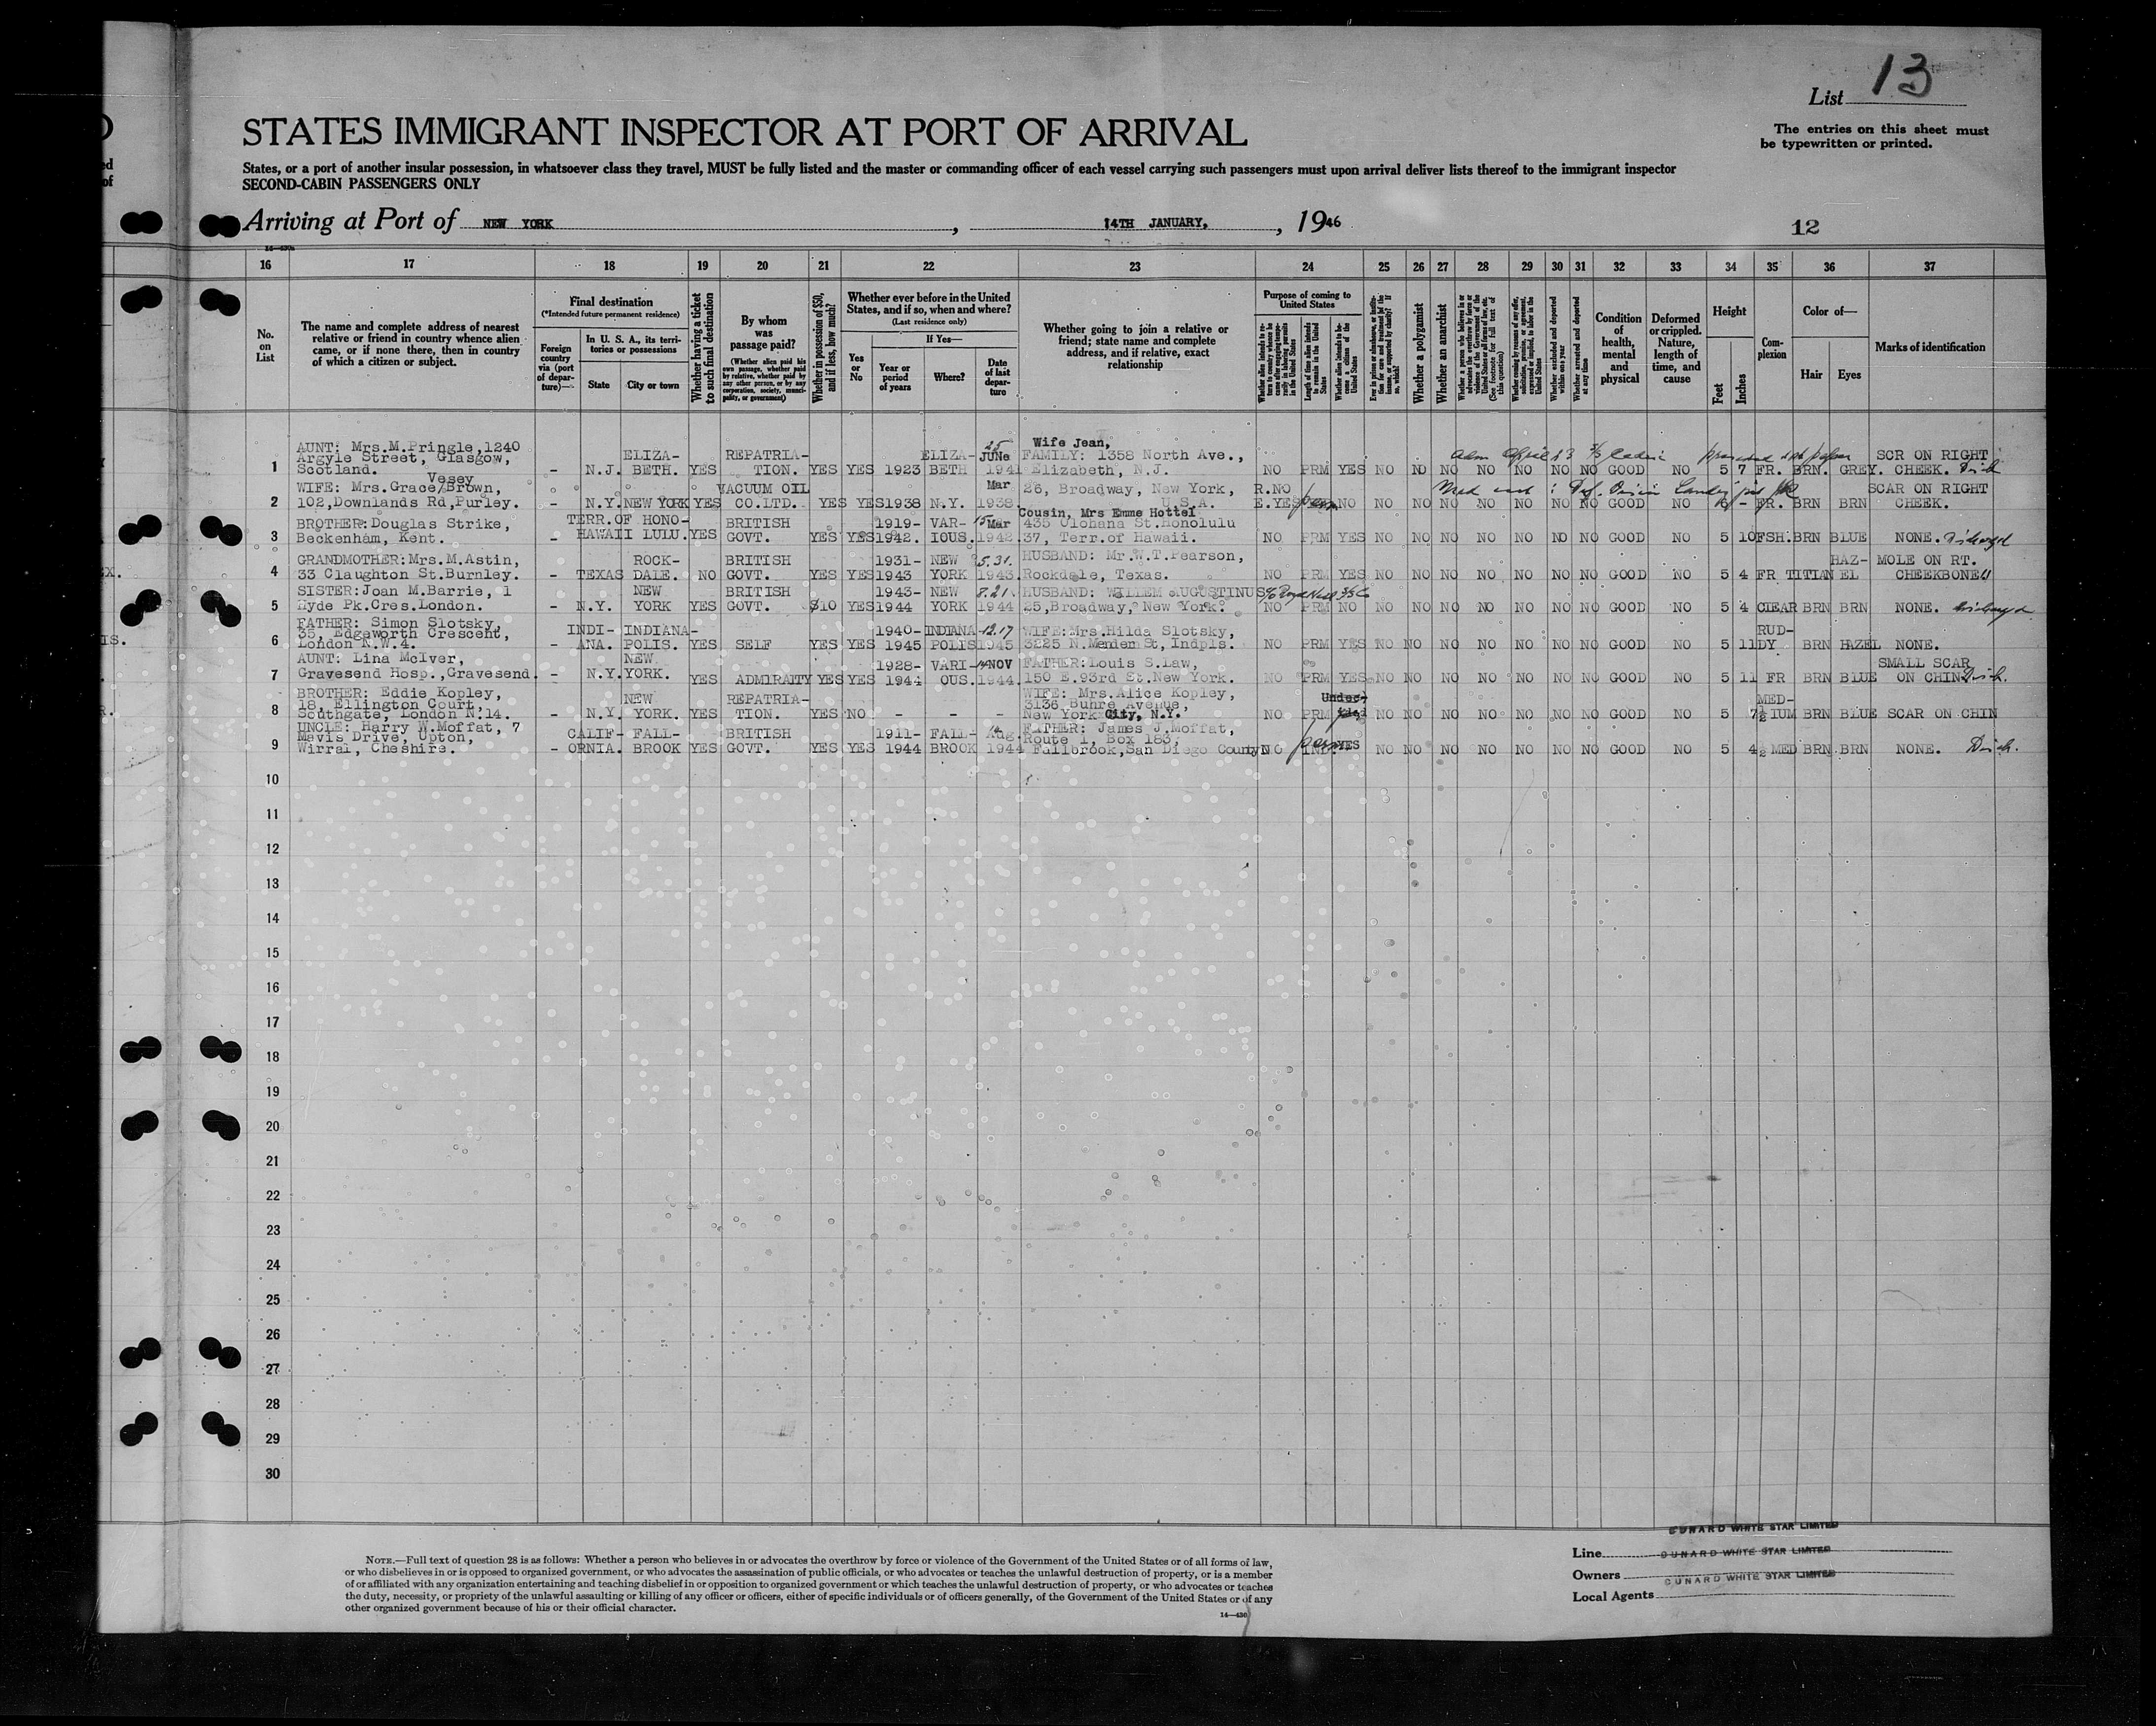 List 13
STATES IMMIGRANT INSPECTOR AT PORT OF ARRIVAL
The entries on this sheet must
be typewritten or printed.
States, or a port of another insular possession, in whatsoever class they travel, MUST be fully listed and the master or commanding officer of each vessel carrying such passengers must upon arrival deliver lists thereof to the immigrant inspector
SECOND-CABIN PASSENGERS ONLY
Arriving at Port of NEW YORK, 14TH JANUARY, 1946
12
16 17 18 19 20 21 22 23 24 25 26 27 28 29 30 31 32 33 34 35 36 37
No. on List
The name and complete address of nearest relative or friend in country whence alien came, or if none there, then in country of which a citizen or subject.
Final destination
(*Intended future permanent residence)
Foreign country via (port of departure)—
In U. S. A., its territories or possessions
State
City or town
Whether having a ticket to such final destination
By whom was passage paid?
(Whether alien paid his own passage, whether paid by relative, whether paid by any other person, or by any corporation, society, municipality, or government)
Whether in possession of $50, and if less, how much?
Whether ever before in the United States, and if so, when and where?
(Last residence only)
Yes or No
If Yes—
Year or period of years
Where?
Date of last departure
Whether going to join a relative or friend; state name and complete address, and if relative, exact relationship
Purpose of coming to United States
Whether alien intends to return to country whence he came after engaging temporarily in laboring pursuits in the United States
Length of time alien intends to remain in the United States
Whether alien intends to become a citizen of the United States
Whether a polygamist
Whether an anarchist
Whether excluded and deported within one year
Whether arrested and deported at any time
Condition of health, mental and physical
Deformed or crippled. Nature, length of time, and cause
Height
Feet
Inches
Complexion
Color of—
Hair
Eyes
Marks of identification
1 AUNT: Mrs.M.Pringle,1240 Argyle Street, Glasgow, Scotland. - N.J. ELIZA-BETH. YES REPATRIA-TION. YES YES 1923 ELIZA-BETH 25 JUNe 1941 Wife Jean, FAMILY: 1358 North Ave., Elizabeth, N.J. NO PRM YES NO NO NO NO NO NO NO GOOD NO 5 7 FR. BRN. GREY. SCR ON RIGHT CHEEK.
2 WIFE: Mrs.Grace Vesey/Brown, 102,Downlands Rd,Purley. - N.Y. NEW YORK YES VACUUM OIL CO.LTD. YES YES 1938 N.Y. Mar 1938. 26, Broadway, New York, U.S.A. R.NO E.YES perm NO NO NO NO NO NO NO NO GOOD NO - FR. BRN BRN SCAR ON RIGHT CHEEK.
3 BROTHER:Douglas Strike, Beckenham, Kent. - TERR.OF HAWAII HONO-LULU. YES BRITISH GOVT. YES YES 1919-1942. VAR-IOUS. 15 Mar 1942. Cousin, Mrs Emme Hottel 435 Olohana St.Honolulu 37, Terr.of Hawaii. NO PRM YES NO NO NO NO NO NO NO GOOD NO 5 10 FSH. BRN BLUE NONE.
4 GRANDMOTHER:Mrs.M.Astin, 33 Claughton St.Burnley. - TEXAS ROCK-DALE. NO BRITISH GOVT. YES YES 1931-1943 NEW YORK 5.31. 1943. HUSBAND: Mr.W.T.Pearson, Rockdale, Texas. NO PRM YES NO NO NO NO NO NO NO GOOD NO 5 4 FR TITIAN HAZ-EL MOLE ON RT. CHEEKBONE
5 SISTER:Joan M.Barrie, 1 Hyde Pk.Cres.London. - N.Y. NEW YORK YES BRITISH GOVT. $10 YES 1943-1944 NEW YORK 8.21 1944 HUSBAND: WILLEM AUGUSTINUS 25,Broadway, New York. NO PRM NO NO NO NO NO NO NO NO GOOD NO 5 4 CLEAR BRN BRN NONE.
6 FATHER: Simon Slotsky, 35, Edgeworth Crescent, London N.W.4. - INDI-ANA. INDIANA-POLIS. YES SELF YES YES 1940-1945 INDIANA-POLIS 12.17 1945 WIFE:Mrs.Hilda Slotsky, 3225 N.Merider St, Indpls. NO PRM YES NO NO NO NO NO NO NO GOOD NO 5 11 RUD-DY BRN HAZEL NONE.
7 AUNT: Lina McIver, Gravesend Hosp.,Gravesend. - N.Y. NEW YORK. YES ADMIRALTY YES YES 1928-1944 VARI-OUS. 14 NOV 1944. FATHER:Louis S.Law, 150 E.93rd St.New York. NO PRM YES NO NO NO NO NO NO NO GOOD NO 5 11 FR BRN BLUE SMALL SCAR ON CHIN
8 BROTHER: Eddie Kopley, 18, Ellington Court, Southgate, London N.14. - N.Y. NEW YORK. YES REPATRIA-TION. YES NO - - - WIFE: Mrs.Alice Kopley, 3136 Buhre Avenue, New York City, N.Y. NO PRM Undec- NO NO NO NO NO NO NO GOOD NO 5 7½ MED-IUM BRN BLUE SCAR ON CHIN
9 UNCLE: Harry W.Moffat, 7 Mavis Drive, Upton, Wirral, Cheshire. - CALIF-ORNIA. FALL-BROOK YES BRITISH GOVT. YES YES 1911-1944 FALL-BROOK Aug. 1944 FATHER: James J.Moffat, Route 1, Box 183, Fallbrook,San Diego County NO IND. perm YES NO NO NO NO NO NO NO GOOD NO 5 4½ MED BRN BRN NONE.
10
11
12
13
14
15
16
17
18
19
20
21
22
23
24
25
26
27
28
29
30
NOTE.—Full text of question 28 is as follows: Whether a person who believes in or advocates the overthrow by force or violence of the Government of the United States or of all forms of law,
or who disbelieves in or is opposed to organized government, or who advocates the assassination of public officials, or who advocates or teaches the unlawful destruction of property, or is a member
of or affiliated with any organization entertaining and teaching disbelief in or opposition to organized government or which teaches the unlawful destruction of property, or who advocates or teaches
the duty, necessity, or propriety of the unlawful assaulting or killing of any officer or officers, either of specific individuals or of officers generally, of the Government of the United States or of any
other organized government because of his or their official character.
14—430
CUNARD WHITE STAR LIMITED
Line CUNARD WHITE STAR LIMITED
Owners CUNARD WHITE STAR LIMITED
Local Agents